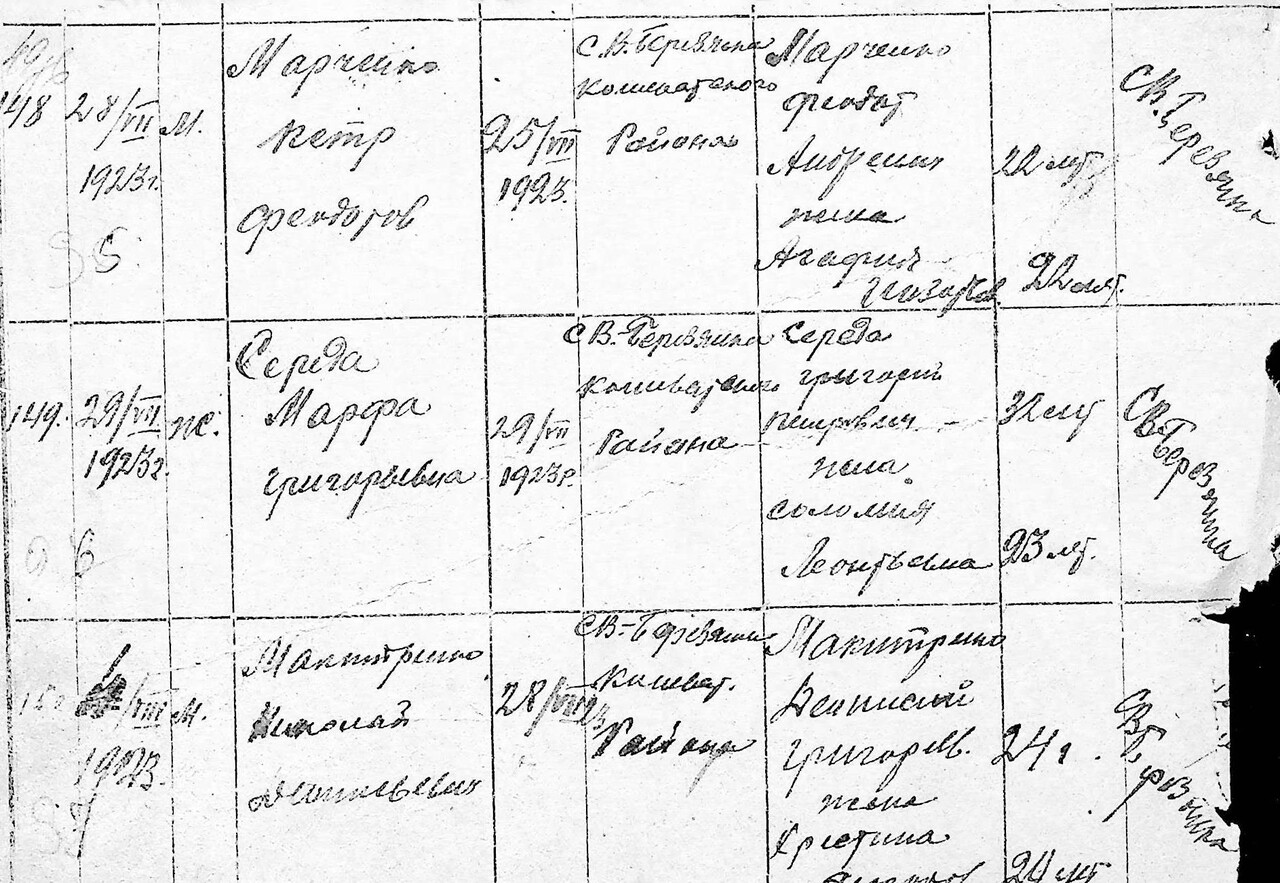 148
28/VII
1923г.
М.
Марченко
Петр
Феодотов
25/VII
1923.
С. В.-Березянка
Кошеватского
Района
Марченко
Феодот
Андреевич
жена
Агафия
22 лет
22 лет.
С В. Березянка
95
149.
29/VII
1923г.
ж.
Середа
Марфа
Григорьевна
29/VII
1923г.
С В.-Березянка
Кошеватского
Района
Середа
Григорий
Петрович
жена
Соломия
Леонтьевна
32 лет
23 лет.
С В. Березянка
96
/VIII
1923.
М.
Макитренко
Николай
28/VII
С В.-Березянка
Кошеват.
Района
Макитренко
Григорьев.
жена
Христина
24 г.
24 лет
С В. Березянка
97